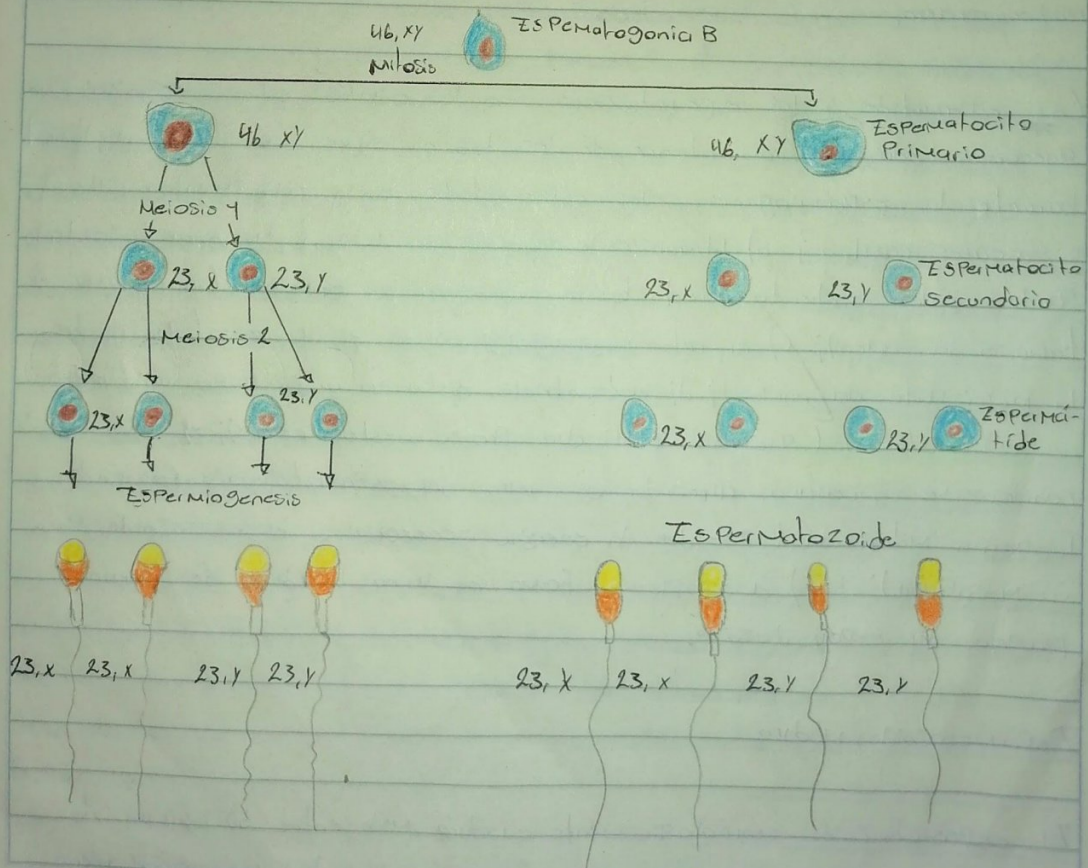 46, XY
Espermatogonia B
Mitosis
46 XY
46, XY
Espermatocito
Primario
Meiosis 1
23, X
23, Y
23, X
23, Y
Espermatocito
secundario
Meiosis 2
23, X
23, Y
23, X
23, Y
Espermá-
tide
Espermiogenesis
Espermatozoide
23, X
23, X
23, Y
23, Y
23, X
23, X
23, Y
23, Y